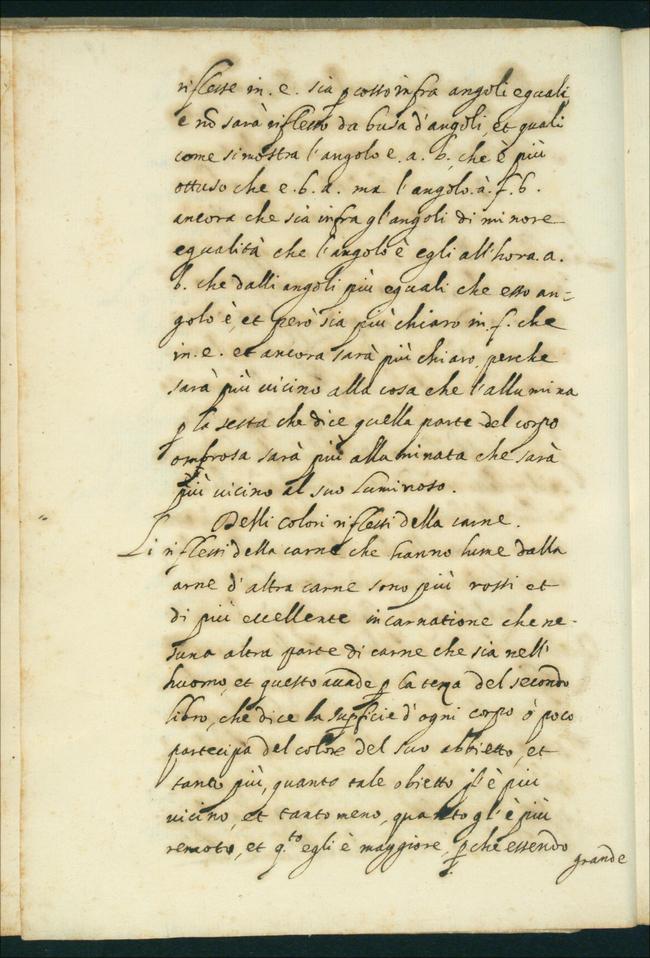 riflesse in. e. sia p cosso infra angoli eguali,
e nō sarà riflesso da busa d'angoli, et quali
come si mostra l'angolo e. a. b. che è più
ottuso che e. b. a. ma l'angolo. à. f. b.
ancora che sia infra gl'angoli di minore
egualità che l'angolo è egli all'hora. a.
b. che dalli angoli più eguali che esso an=
golo è, et però sia più chiaro in. f. che
in. e. et ancora sarà più chiaro, perche
sarà più vicino alla cosa che l'allumina
p la sesta che dice quella parte del corpo
ombrosa sarà più alluminata che sarà
più vicino al suo luminoso.
Delli colori riflessi della carne.
Li riflessi della carne che hanno lume dalla
arne d'altra carne sono più rossi et
di più eccellente incarnatione che ne-
suna altra parte di carne che sia nell'
huomo, et questo accade p la terza del secondo
libro, che dice la superficie d'ogni corpo ò poco
partecipa del colore del suo abbietto, et
tanto più, quanto tale obietto gl'è più
vicino, et tanto meno, quanto gl'è più
remoto, et q.to egli è maggiore, p che essendo
grande